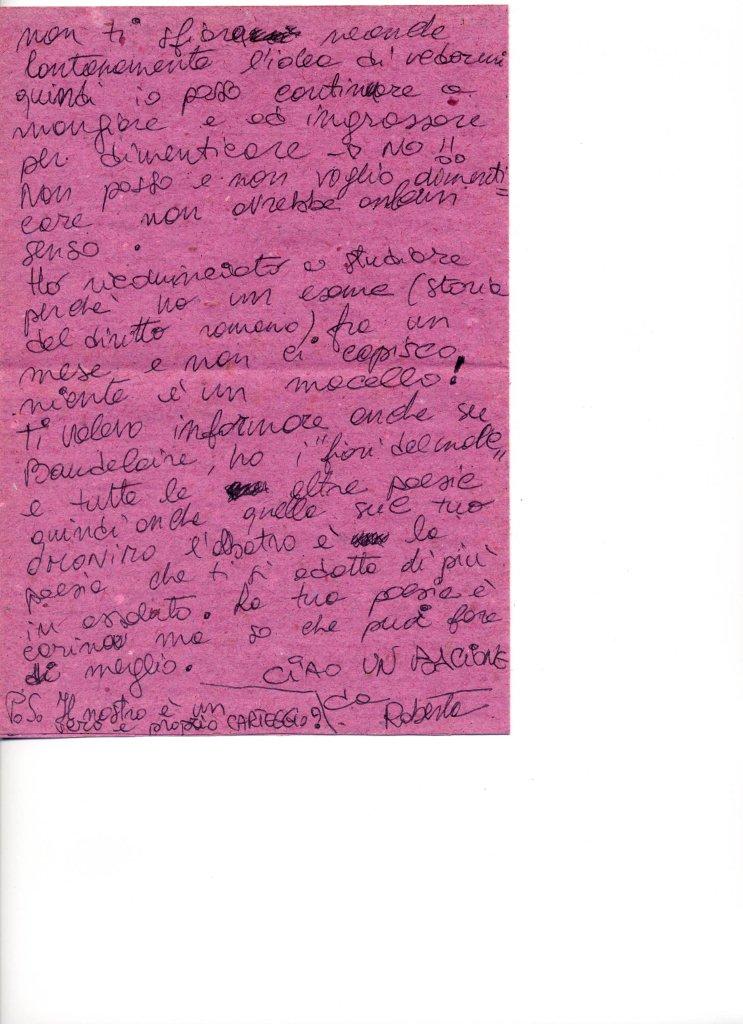 non ti sfiora neande
lontanamente l'idea di vedermi
quindi io posso continuare a
mangiare e ad ingrassare
per dimenticare → NO!!
Non posso e non voglio dimenti=
care non avrebbe
senso.
Ho ricominciato a studiare
perchè ho un esame (storia
del diritto romano) fra un
mese e non ci capisco
niente è un macello!
Ti volevo informare anche su
Baudelaire, ho i "fiori del male"
e tutte le altre poesie
quindi anche quella sul tuo
l'albatro è la
poesia che ti si adatta di più
in assoluto. La tua poesia è
carina ma so che puoi fare
di meglio. CIAO UN BACIONE
La Roberta
P.S. Il nostro è un
vero e proprio CARTEGGIO?